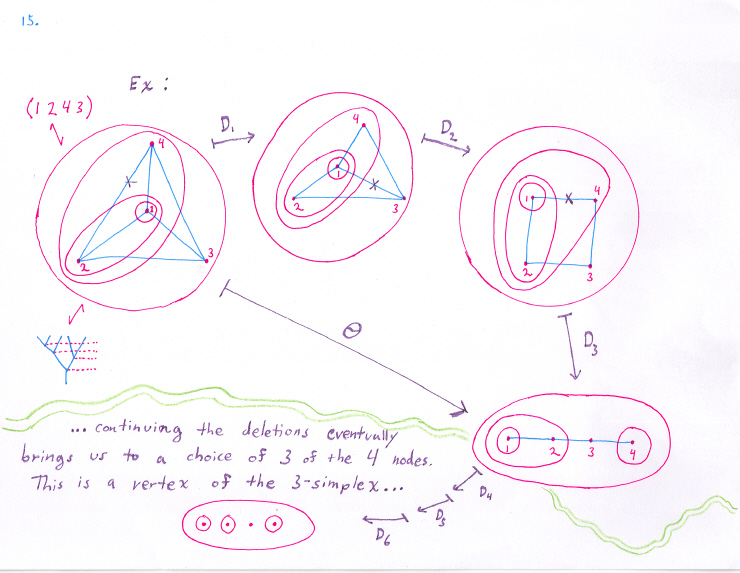 15.
Ex :
(1 2 4 3)
D1
D2
4
1
2
3
4
1
2
3
1
4
2
3
Θ
D3
... continuing the deletions eventually
brings us to a choice of 3 of the 4 nodes.
This is a vertex of the 3-simplex...
1
2
3
4
D4
D5
D6